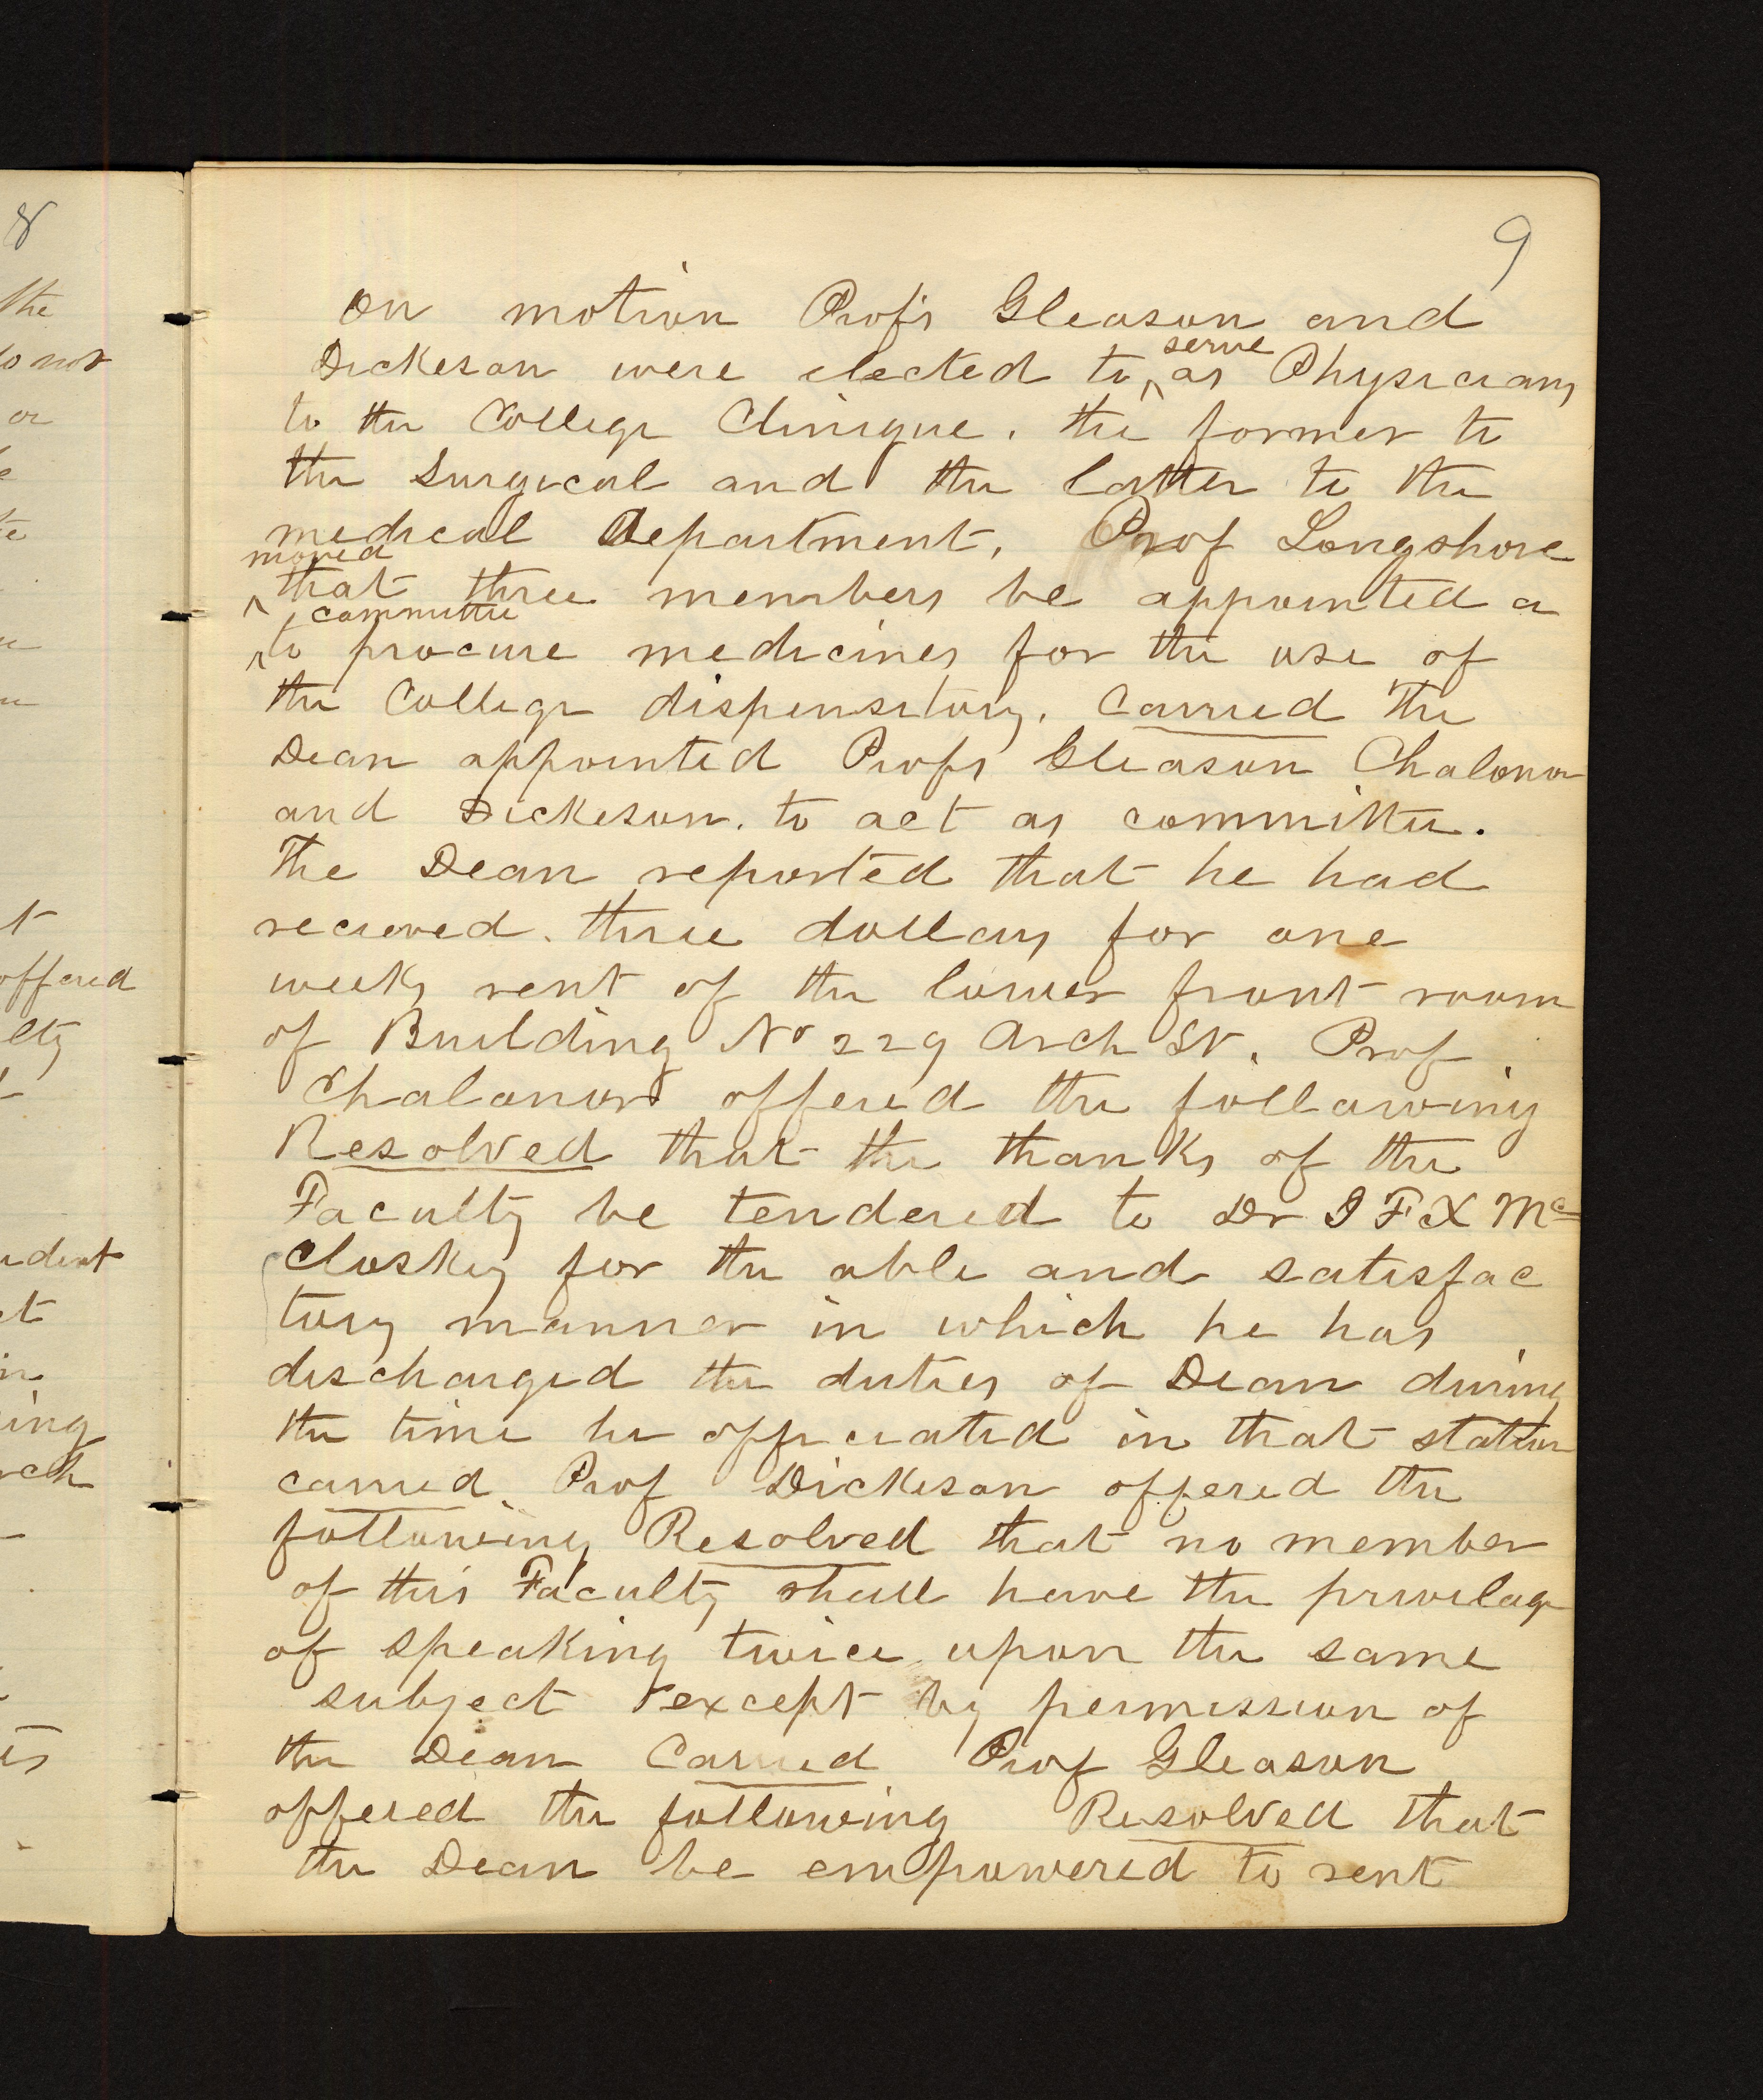 8
the
do not
or
te
t
offered
lty
ident
ct
in
ing
rch
9
On motion Profs Gleason and
Dickeson were elected to ^serve as Physicians
to the College Clinique. the former to
the Surgical and the latter to the
medical Department. Prof Longshore
moved
^ that three members be appointed a
committee
^ to procure medicines for the use of
the College dispensitory. Carried The
Dean appointed Profs Gleason Chalonor
and Dickeson. to act as committee.
The Dean reported that he had
recieved. three dollars for one
weeks rent of the lower front room
of Building No 229 Arch St. Prof
Chalonor offered the following
Resolved that the thanks of the
Faculty be tendered to Dr J F X Mc
Closkey for the able and satisfac
tory manner in which he has
discharged the duties of Dean during
the time he officiated in that station
carried Prof Dickeson offered the
following Resolved that no member
of this Faculty shall have the privilage
of speaking twice upon the same
subject except by permission of
the Dean Carried Prof Gleason
offered the following Resolved that
the Dean be empowered to rent